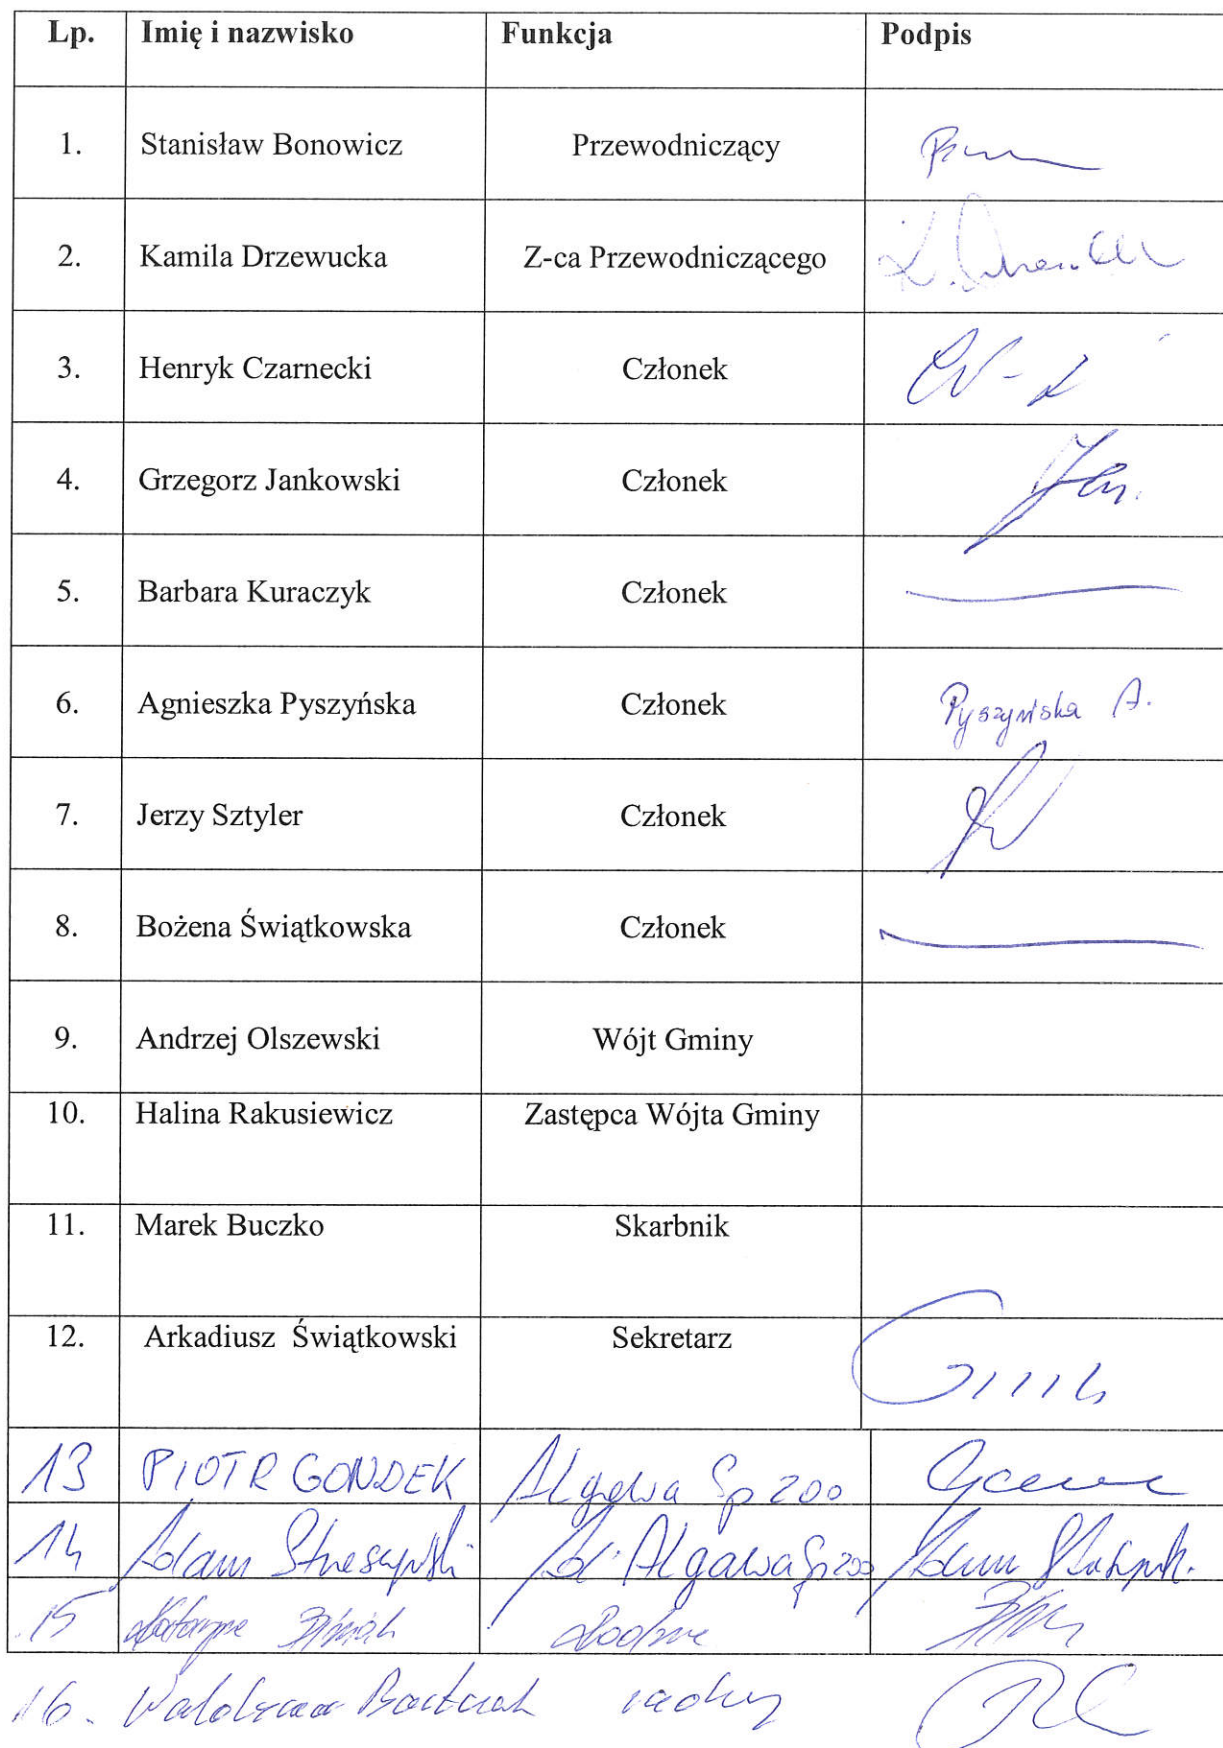 Lp. Imię i nazwisko Funkcja Podpis
1. Stanisław Bonowicz Przewodniczący
2. Kamila Drzewucka Z-ca Przewodniczącego
3. Henryk Czarnecki Członek
4. Grzegorz Jankowski Członek
5. Barbara Kuraczyk Członek
6. Agnieszka Pyszyńska Członek Pyszyńska A.
7. Jerzy Sztyler Członek
8. Bożena Świątkowska Członek
9. Andrzej Olszewski Wójt Gminy
10. Halina Rakusiewicz Zastępca Wójta Gminy
11. Marek Buczko Skarbnik
12. Arkadiusz Świątkowski Sekretarz
13 PIOTR GONDEK Algawa Sp zoo
14 Adam Algawa Sp zoo Adam
15
16.